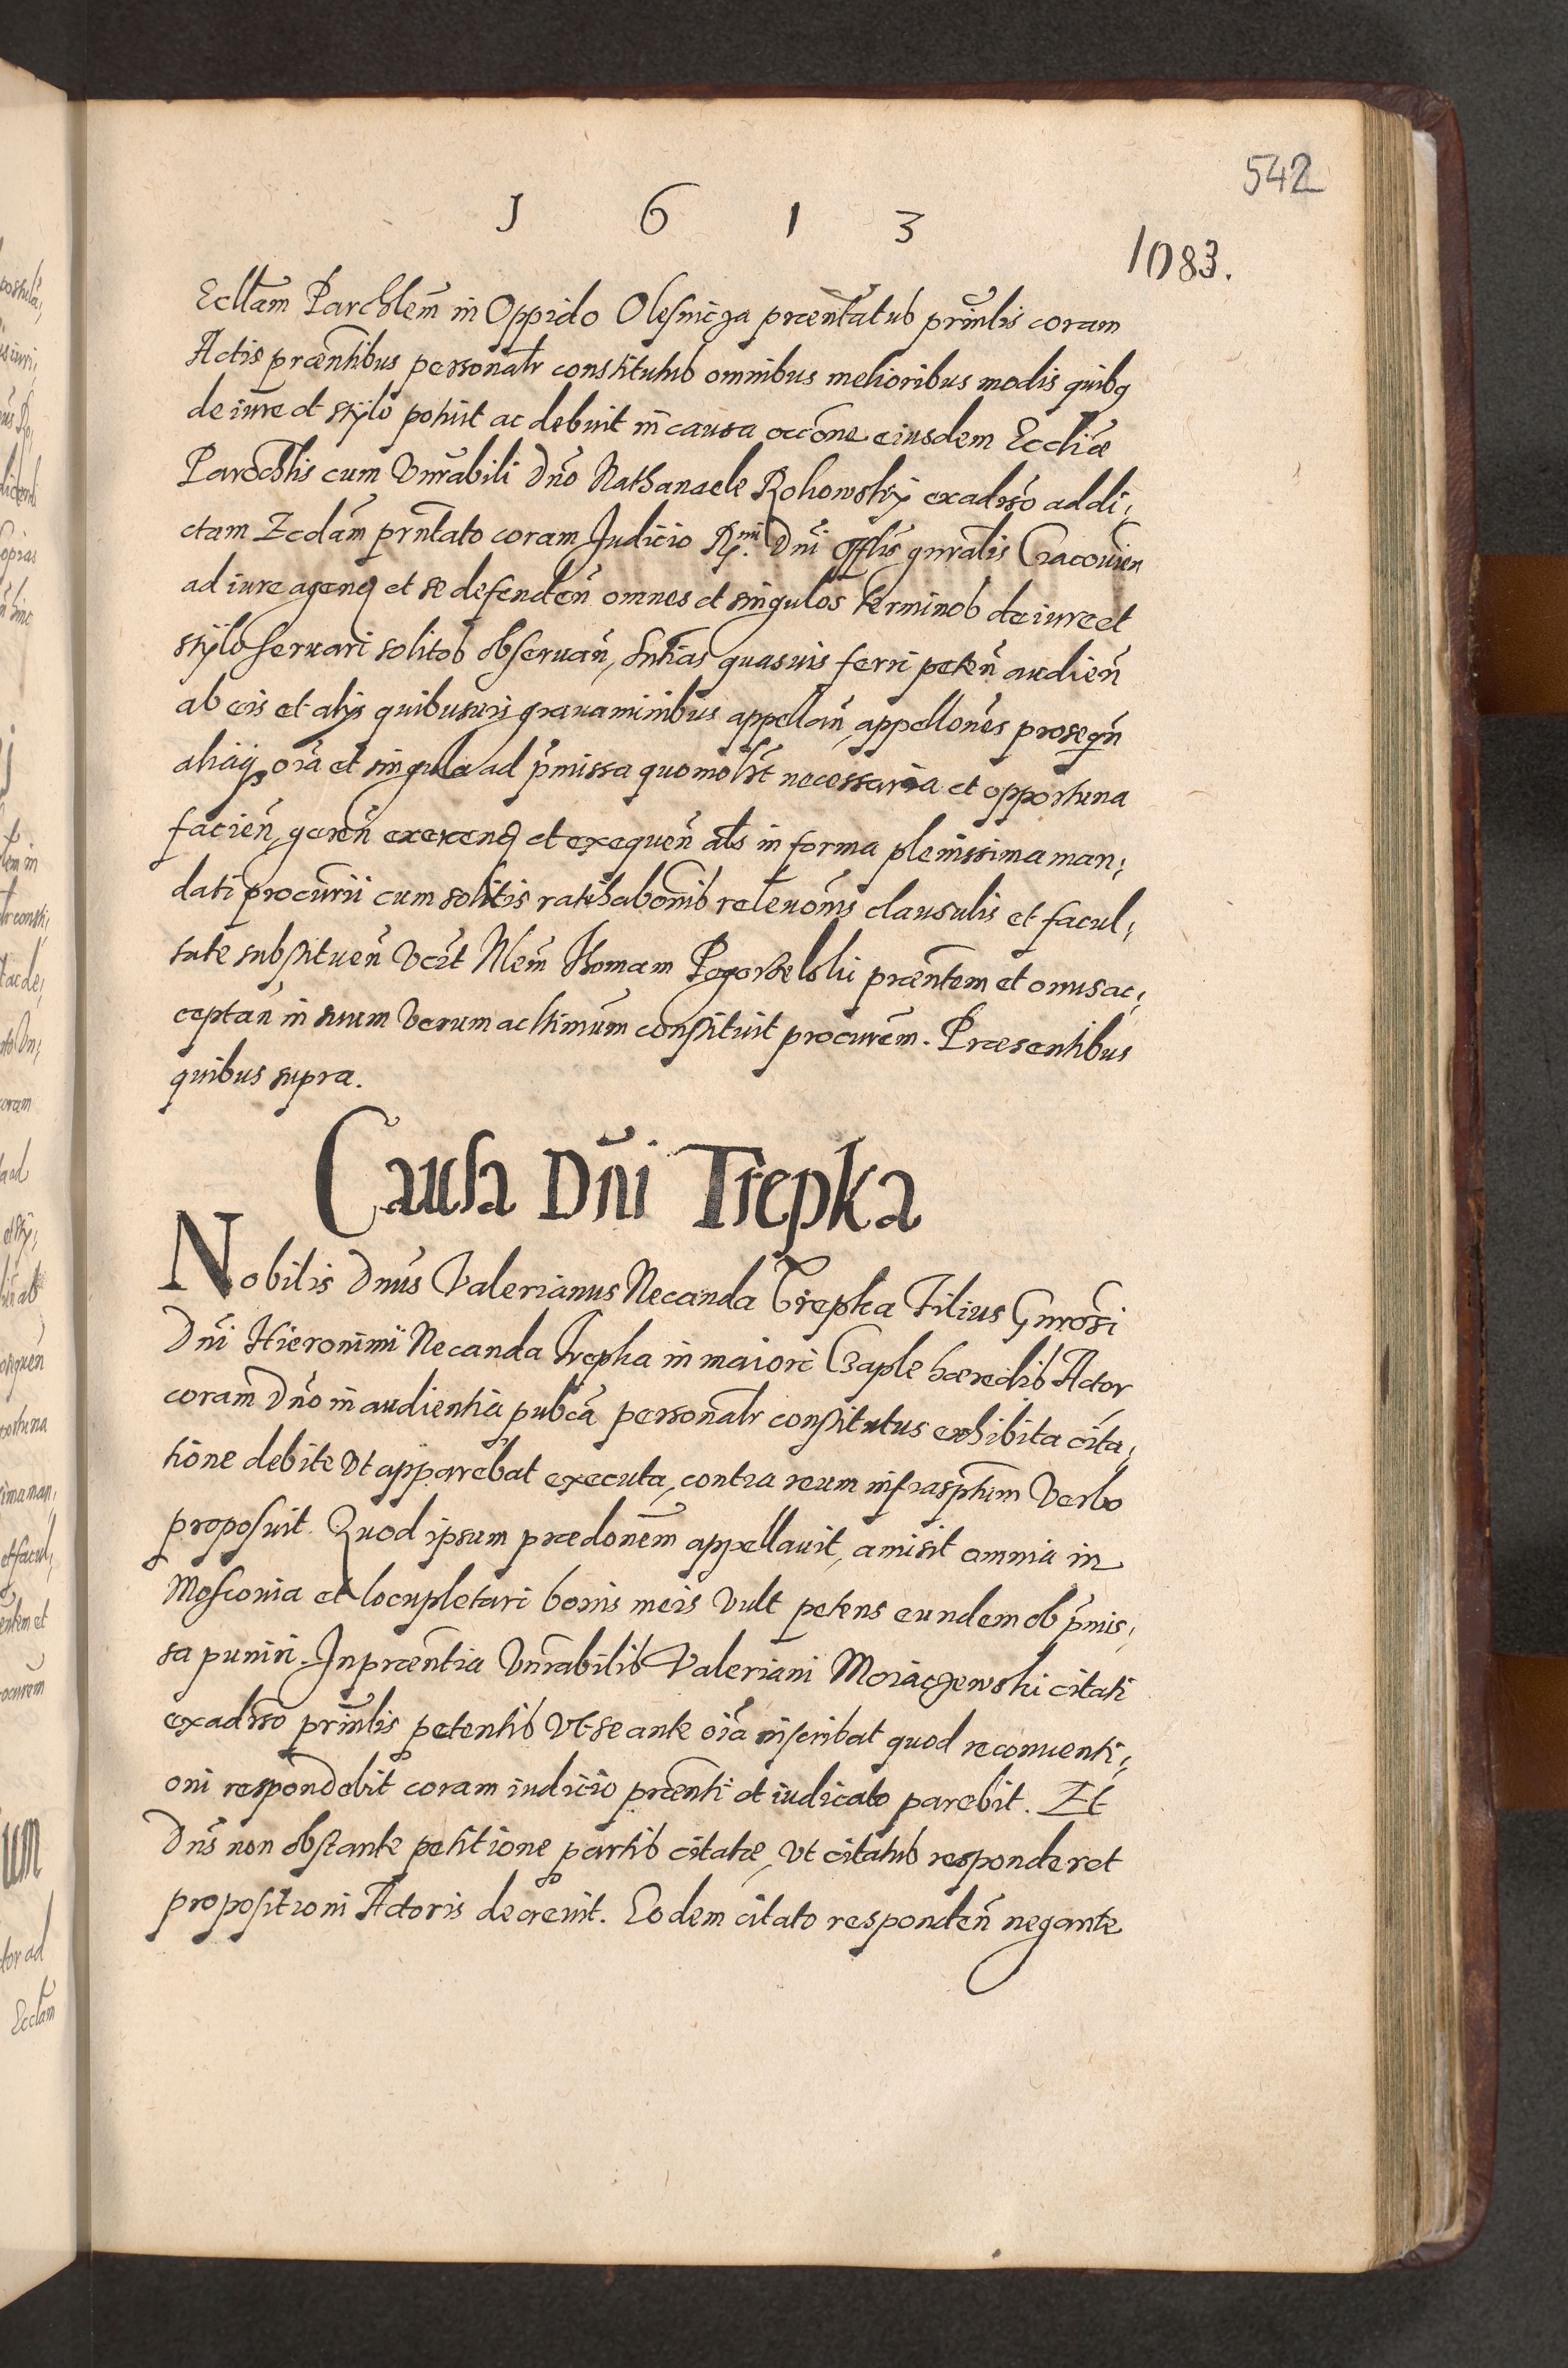 542
1 6 1 3
1083.
Ecclam Parchlem in Oppido Olesnicza præntatus prinlis coram
Actis præntibus personalr constitutus omnibus melioribus modis quibq
de iure et stylo potuit ac debuit in causa occone eiusdem Eccliæ
Parochlis cum Vnrabili Dno Nathanaele Rohowsky exadrso addi,
ctam Ecclam prntato coram Judicio R.mi Dni Offlis gnralis Cracouien
ad iure agend et se defenden omnes et singulos terminos de iure et
stylo seruari solitos obseruan, sntias quasuis ferri peten audien
ab eis et alys quibusuis grauaminibus appellan, appellones prosequen
aliaq, oia et singula ad pmissa quomolbt necessaria et opportuna
facien, geren exercend et exequen als in forma plenissima man,
dati procurii cum solitis ratihabonis releuonis clausulis et facul,
tate substituen Vcit Nlem Thomam Pogorzelski præntem et onus ac,
ceptan in suum verum ac ltimum constituit procurem. Præsentibus
quibus supra.
Causa Dni Trepka
Nobilis Dnus Valerianus Necanda Trepka Filius Gnrosi
Dni Hieronimi Necanda Trepka in maiori Czaple hæredis Actor
coram Dno in audientia pubca personalr constitutus exhibita cita,
tione debite vt apparebat executa, contra reum infrasptum Verbo
proposuit. Quod ipsum prædonem appellauit, amisit omnia in
Mosconia et locupletari bonis meis vult petens eundem ob pmis,
sa puniri. In præntia Vnrabilis Valeriani Moiaczewski citati
exadrso prinlis petentis vt se ante oia inscribat quod reconuenti,
oni respondebit coram iudicio prænti et iudicato parebit. Et
Dns non obstante petitione partis citatæ, vt citatus responderet
propositioni Actoris decreuit. Eodem citato responden negante